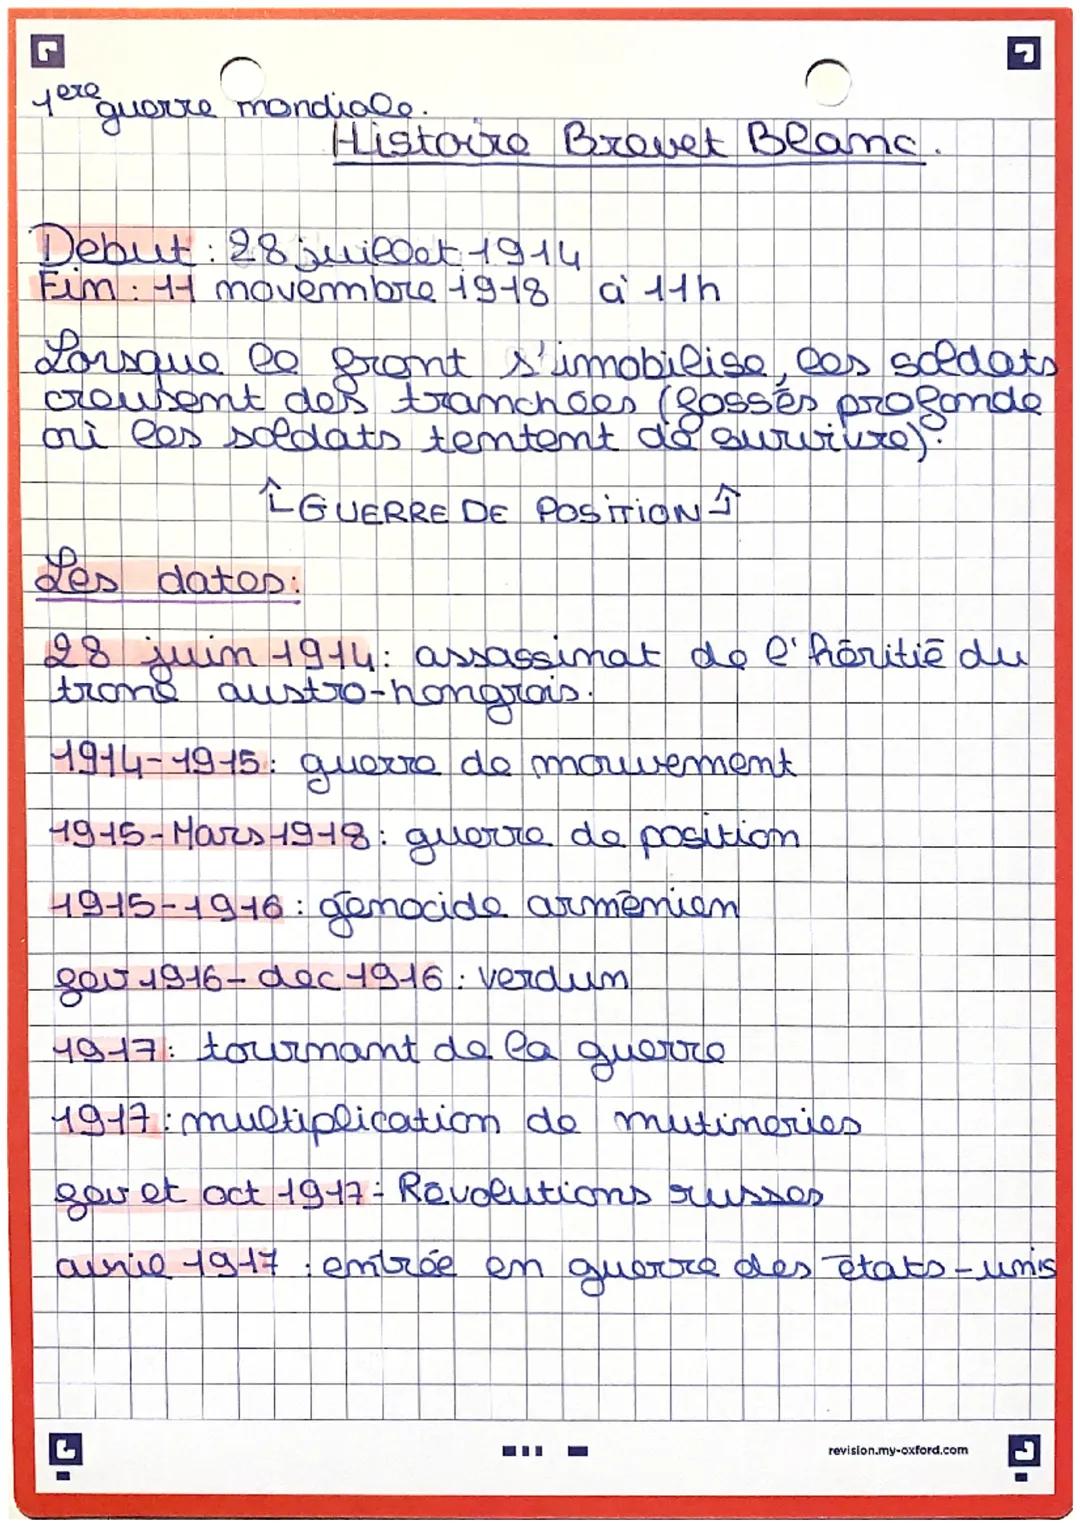 1ere guerre mondiale.
Histoire Brevet Blanc.
Debut : 28 juillet 1914
Fin : 11 novembre 1918 à 11h
Lorsque le front s'immobilise, les soldats
creusent des tranchées (fossés profonde
où les soldats tentent de survivre).
↑ GUERRE DE POSITION ↑
Les dates:
28 juin 1914: assassinat de l'héritié du
trone austro-hongrois.
1914-1915: guerre de mouvement
1915-Mars 1918: guerre de position
1915-1916: génocide arménien
fev 1916-dec 1916: verdun
1917: tournant de la guerre
1917: multiplication de mutineries
fev et oct 1917: Révolutions russes
avril 1917: entrée en guerre des états-unis
revision.my-oxford.com